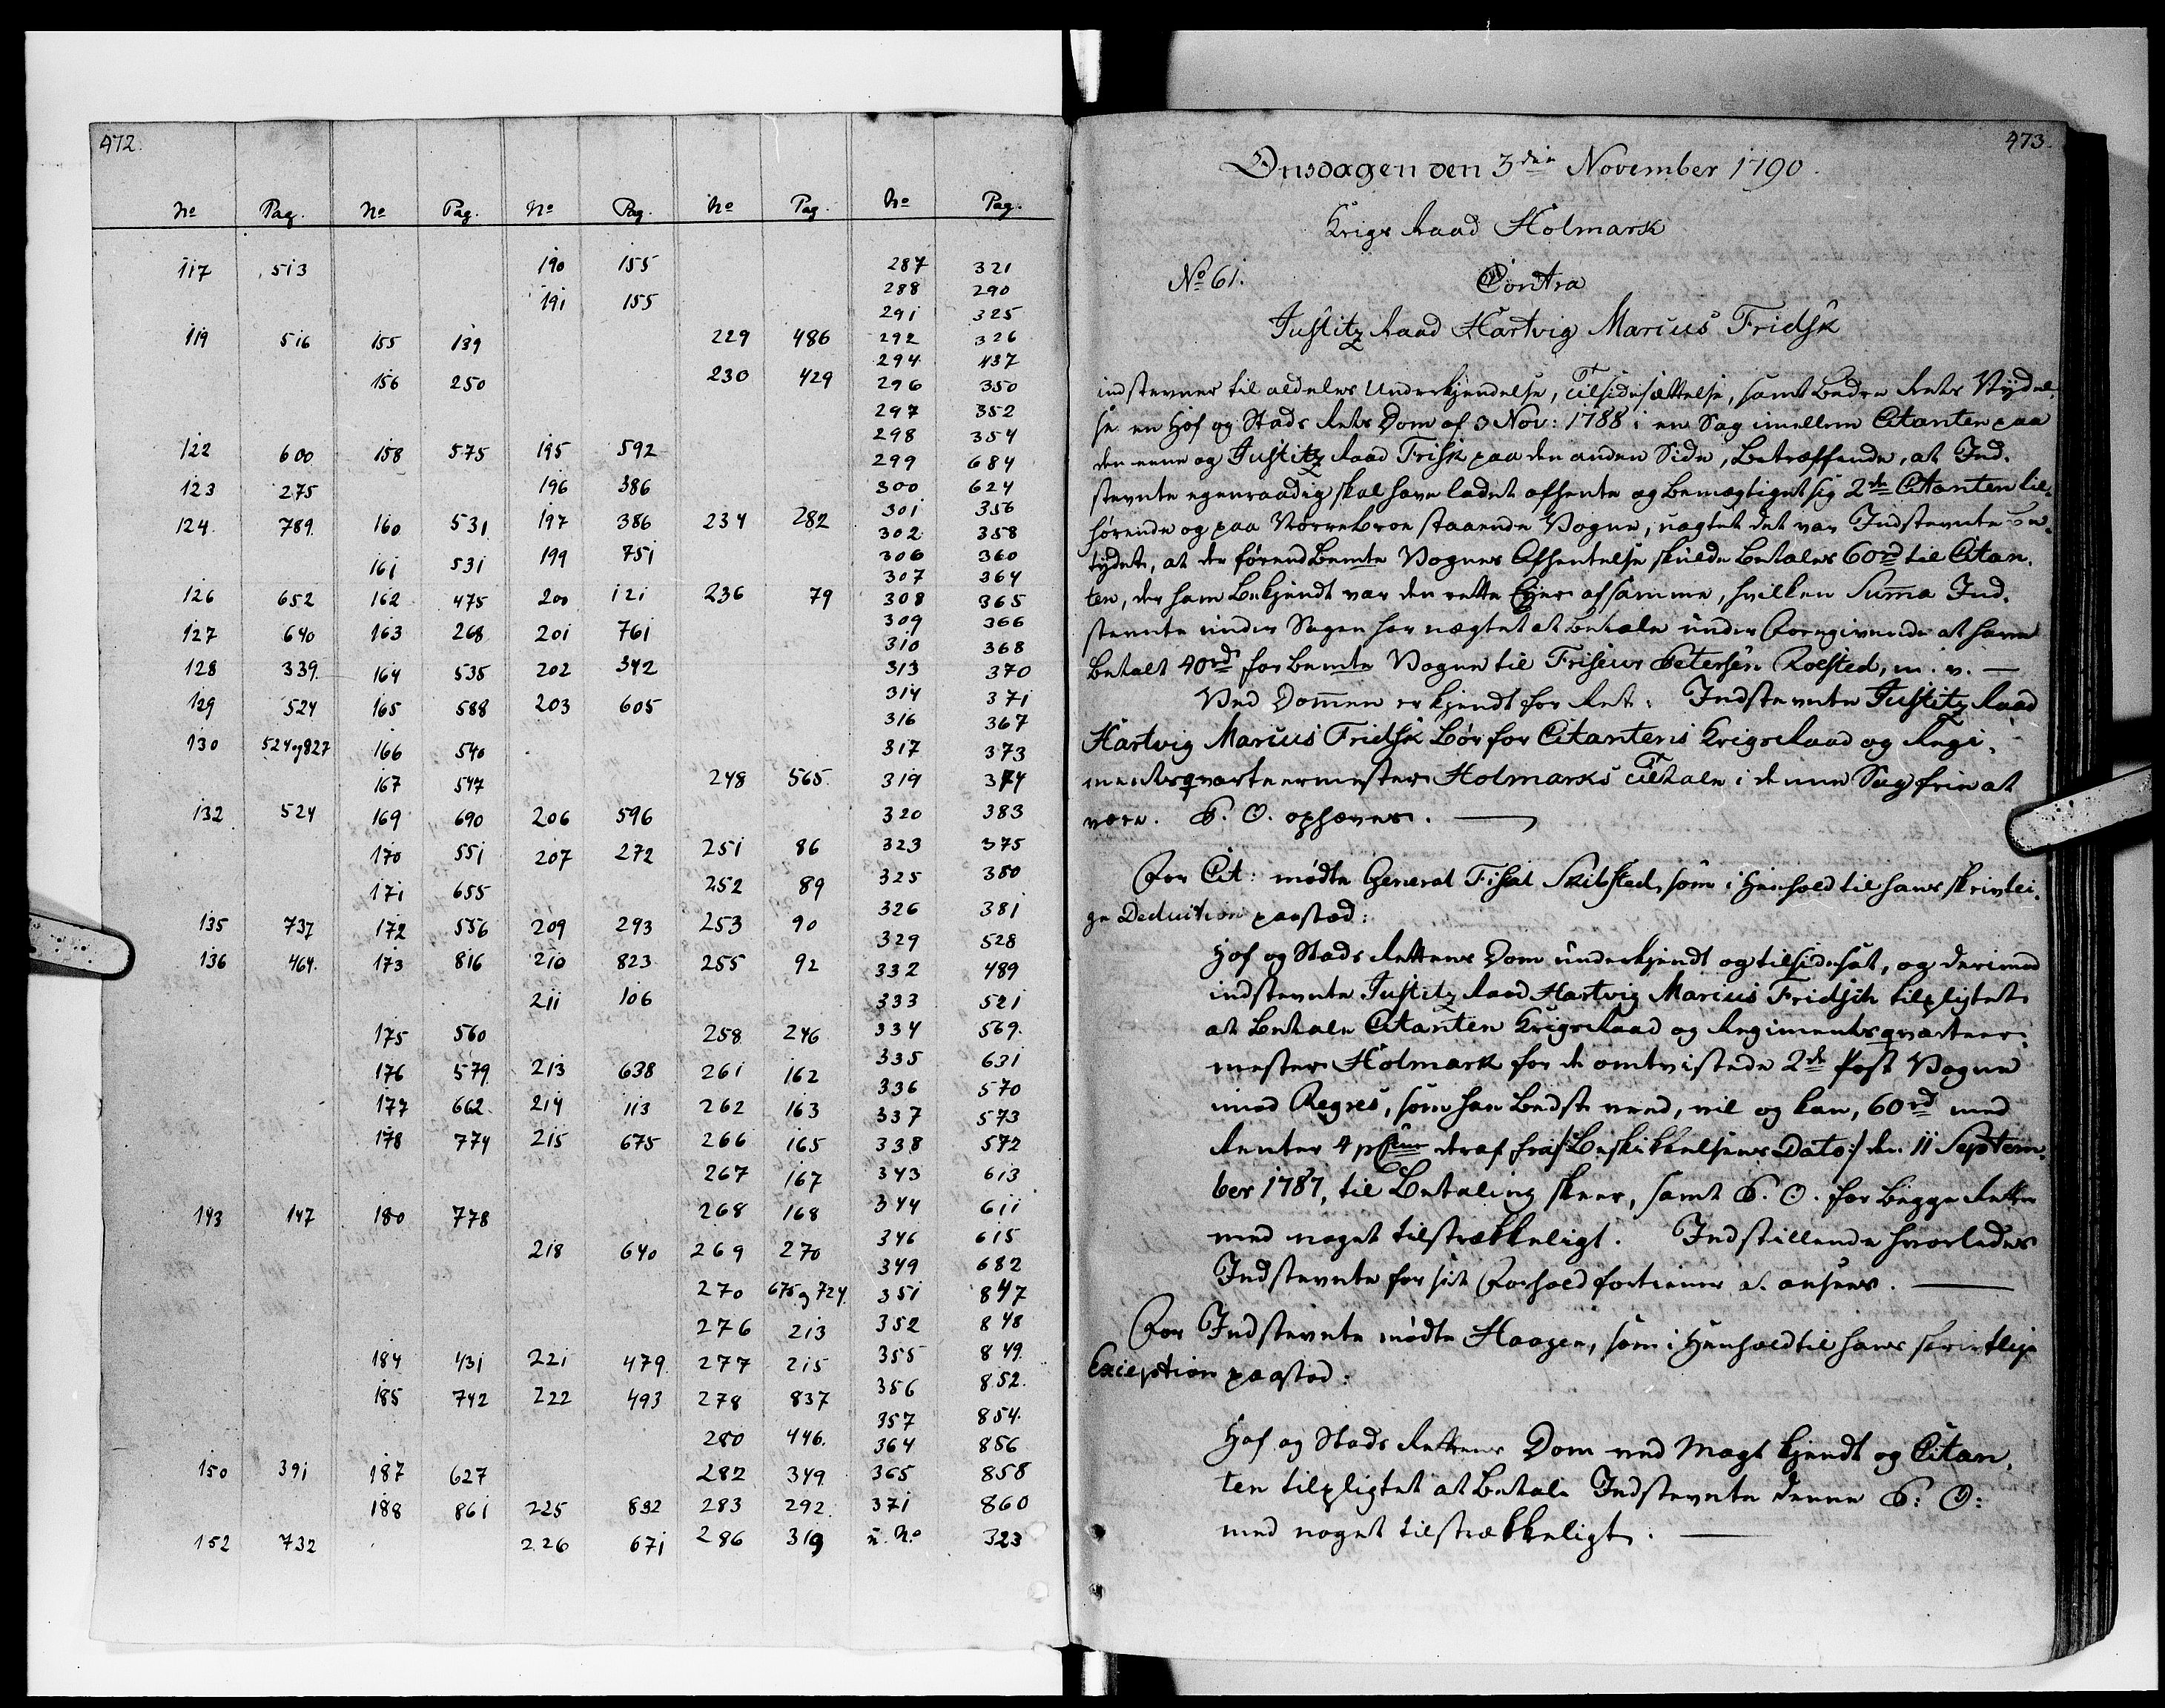 472.
No Pag. No Pag. No Pag. No Pag No Pag.
117 513 190 155 287 321
288 290
191 155 291 325
119 516 155 139 229 486 292 326
294 437
156 250 230 429 296 350
297 352
298 354
122 600 158 575 195 592 299 684
123 275 196 386 300 624
301 356
124 789 160 531 197 386 234 282 302 358
161 531 199 751 306 360
307 364
126 652 162 475 200 121 236 79 308 365
309 366
127 640 163 268 201 761 310 368
128 339 164 535 202 342 313 370
314 371
129 524 165 588 203 605 316 367
130 524 og 827 166 540 317 373
167 547 248 565 319 374
132 524 169 690 206 596 320 383
170 551 207 272 251 86 323 375
171 655 252 89 325 380
326 381
135 737 172 556 209 293 253 90 329 528
136 464. 173 816 210 823 255 92 332 489
211 106 333 521
175 560 258 246 334 569.
176 579 213 638 261 162 335 631
336 570
177 662 214 113 262 163 337 573
178 774 215 675 266 165 338 572
267 167 343 613
143 147 180 778 268 168 344 611
218 640 269 270 346 615
349 682
270 675 og 724 351 847
276 213 352 848
184 431 221 479 277 215 355 849
185 742 222 493 278 837 356 852.
357 854.
280 446. 364 856
150 391 187 627 282 349 365 858
188 861 225 832 283 292 371 860
152 732 226 671 286 319 u. No 323
473.
Onsdagen den 3die November 1790.
Krigs Raad Holmark
No 61. Contra
Justitz Raad Hartvig Marcus Fridsk
indstevner til aldeles Underkjendelse, Tilsidesættelse, samt bedre Rets Nydel-
se en Hof og Stads Rets Dom af 3 Nov: 1788 i en Sag imellem Citanten paa
den eene og Justitz Raad Frisk paa den anden Side, betræffende, at Ind-
stevnte egenraadig skal have ladet afhente og bemægtiget sig 2de Citanten til-
hørende og paa Nørrebroe staaende Vogne, uagtet det var Indstevnte be-
tydet, at der førend bemte Vognes Afhentelse skulde betales 60rd til Citan-
ten, der ham bekjendt var den rette Ejer af samme, hvilken Suma Ind-
stevnte under Sagen har nægtet at betale under Foregivende at have
betalt 40rd for bemte Vogne til Friseur Petersen Roested, m. v. —
Ved Domen er kjendt for Ret: Indstevnte Justitz Raad
Hartvig Marcus Fridsk bør for Citantens Krigs Raad og Regi-
mentsqvarteermester Holmarks Tiltale i denne Sag frie at
være. P. O. ophæves. —
For Cit: mødte General Fiskal Skibsted, som i Henhold til hans skriftli-
ge Deduction paastod:
Hof og Stads Rettens Dom underkjendt og tilsidesat, og derimod
indstevnte Justitz Raad Hartvig Marcus Fridsch tilpligtet
at betale Citanten Krigs Raad og Regimentsqvarteer-
mester Holmark for de omtvistede 2de Post Vogne
med Regres, som han bedst veed, vil og kan, 60rd med
Renter 4 pCto deraf fra /: Beskikkelsens Dato :/ den 11 Septem-
ber 1787, til Betaling skeer, samt P. O. for begge Retter
med noget tilstrækkeligt. Indstillende hvorledes
Indstevnte for sit Forhold fortiener a. ansees. —
For Indstevnte mødte Haagen, som i Henhold til hans skriftlige
Exception paastod:
Hof og Stads Rettens Dom ved Magt kjendt og Citan-
ten tilpligtet at betale Indstevnte denne P: O:
med noget tilstrækkeligt. —